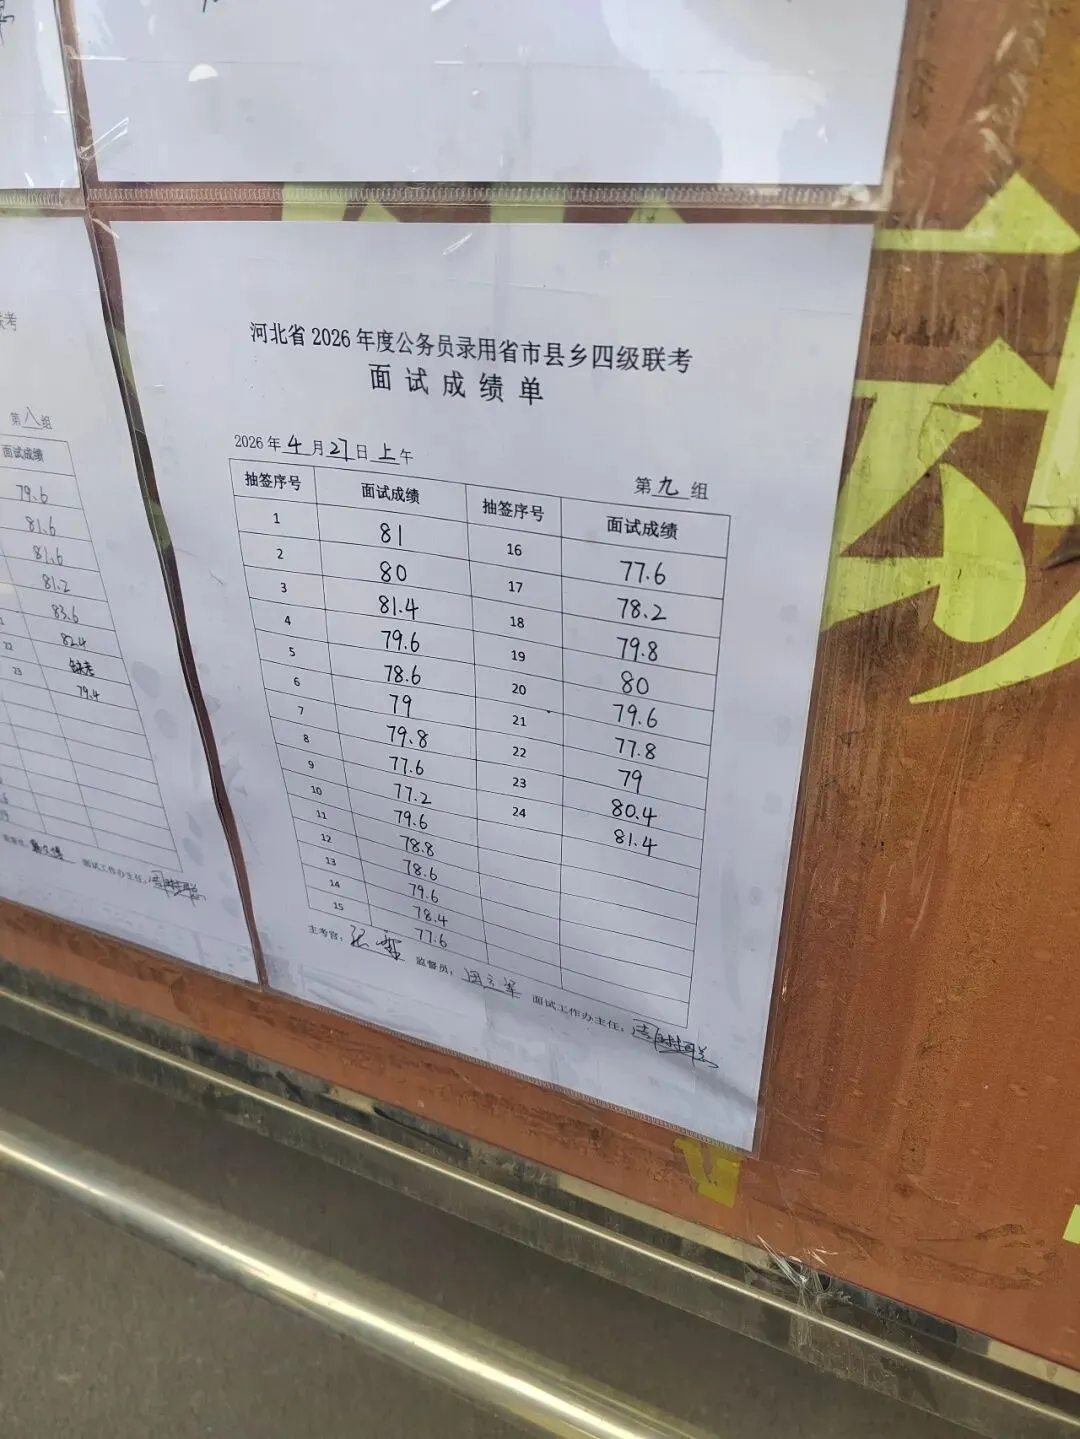 联考
第八组
面试成绩
79.6
81.6
81.6
81.2
83.6
22 82.4
23 缺考
79.4
面试工作办主任：
河北省2026年度公务员录用省市县乡四级联考
面试成绩单
2026年4月27日上午
第九组
抽签序号 面试成绩 抽签序号 面试成绩
1 81 16 77.6
2 80 17 78.2
3 81.4 18 79.8
4 79.6 19 80
5 78.6 20 79.6
6 79 21 77.8
7 79.8 22 79
8 77.6 23 80.4
9 77.2 24 81.4
10 79.6
11 78.8
12 78.6
13 79.6
14 78.4
15 77.6
主考官： 监督员： 面试工作办主任：